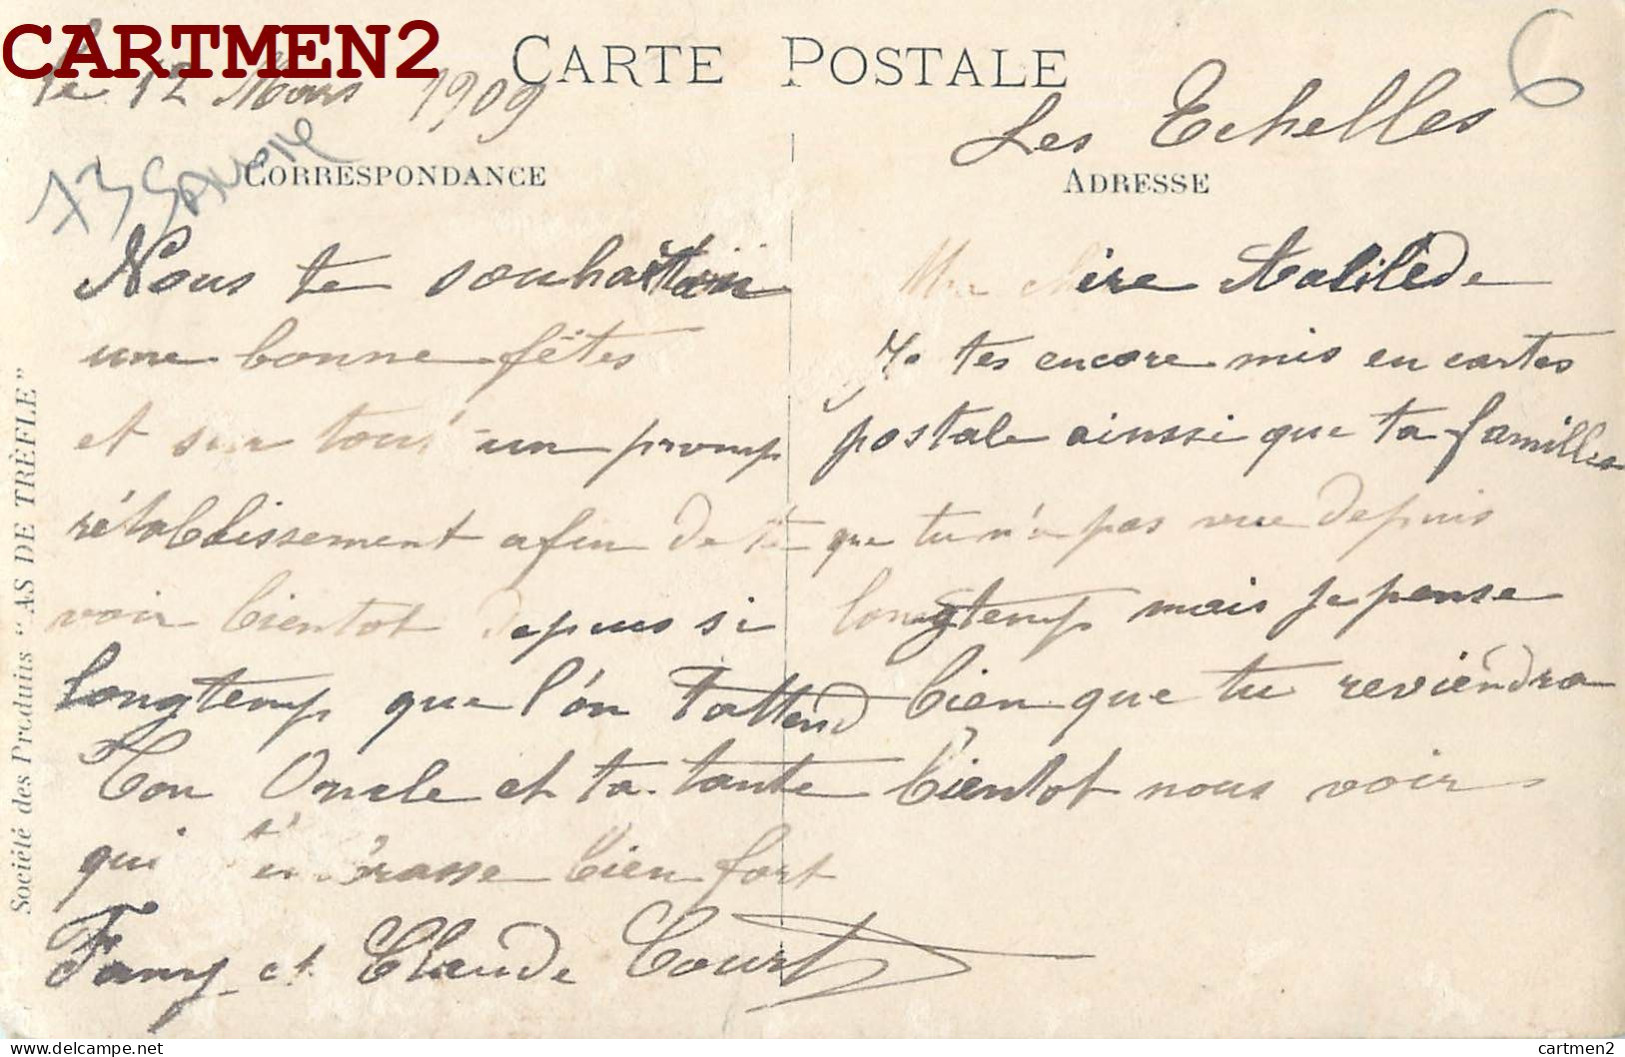 CARTMEN2
CARTE POSTALE
le 12 Mars 1909
Les Echelles
6
73 SAVOIE
CORRESPONDANCE
ADRESSE
Nous te
une bonne fêtes
et sur tous un promp
rétablissement afin de te
voir bientot depuis si
longtemp que l'on t'attend
Ton Oncle et ta tante
qui t'embrasse bien fort
Fany et Claude Court
Ma chère
Je tes encore mis en cartes
postale ainssi que ta familles
que tu n'a pas vue depuis
longtemp mais je pense
bien que tu reviéndra
bientot nous voir
Société des Produits "AS DE TRÈFLE"
delcampe.net
cartmen2